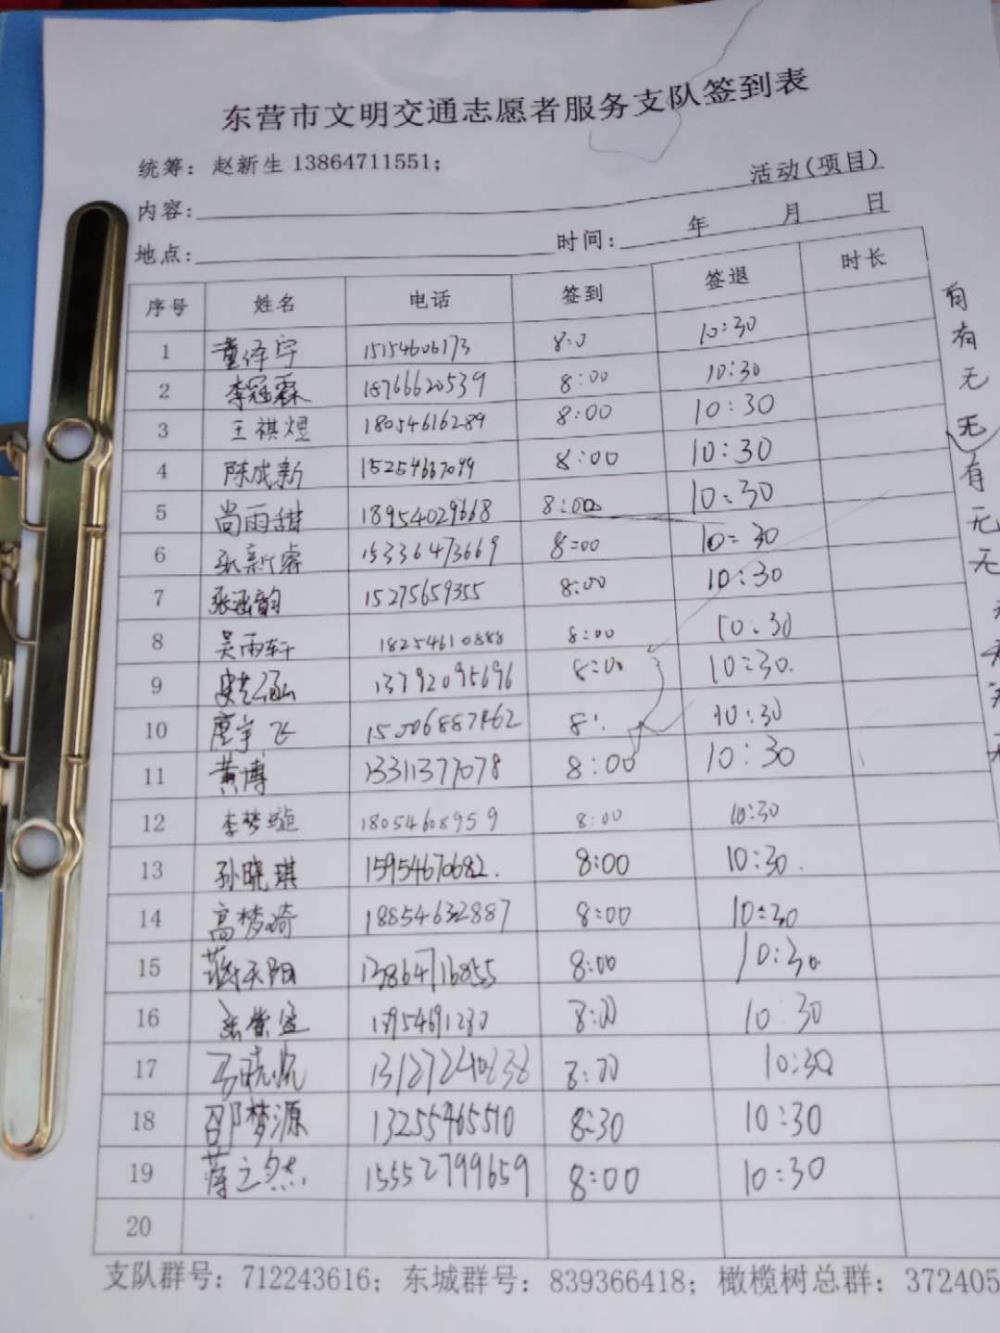 东营市文明交通志愿者服务支队签到表
统筹：赵新生 13864711551；
活动(项目)
内容：
地点： 时间： 年 月 日
序号 姓名 电话 签到 签退 时长
1 童泽宇 15154606173 8:0 10:30
2 李冠霖 18766620539 8:00 10:30
3 王祺煜 18054616289 8:00 10:30
4 陈成新 15254667099 8:00 10:30
5 尚雨甜 18954029668 8:00 10:30
6 张新睿 15336473669 8:00 10:30
7 张涵韵 15275659355 8:00 10:30
8 吴雨轩 18254610888 8:00 10:30
9 13792095696 8:00 10:30.
10 宇飞 8: 10:30
11 黄博 13311377078 8:00 10:30
12 李梦璇 18054608959 8:00 10:30
13 孙晓琪 15954670682. 8:00 10:30.
14 高梦琦 18854632887 8:00 10:30
15 天阳 13864716855 8:00 10:30
16 8:00 10:30
17 8:00 10:30
18 邵梦源 13255465510 8:30 10:30
19 蒋之然 15552799659 8:00 10:30
20
有
有
无
无
有
无
无
支队群号：712243616；东城群号：839366418；橄榄树总群：372405